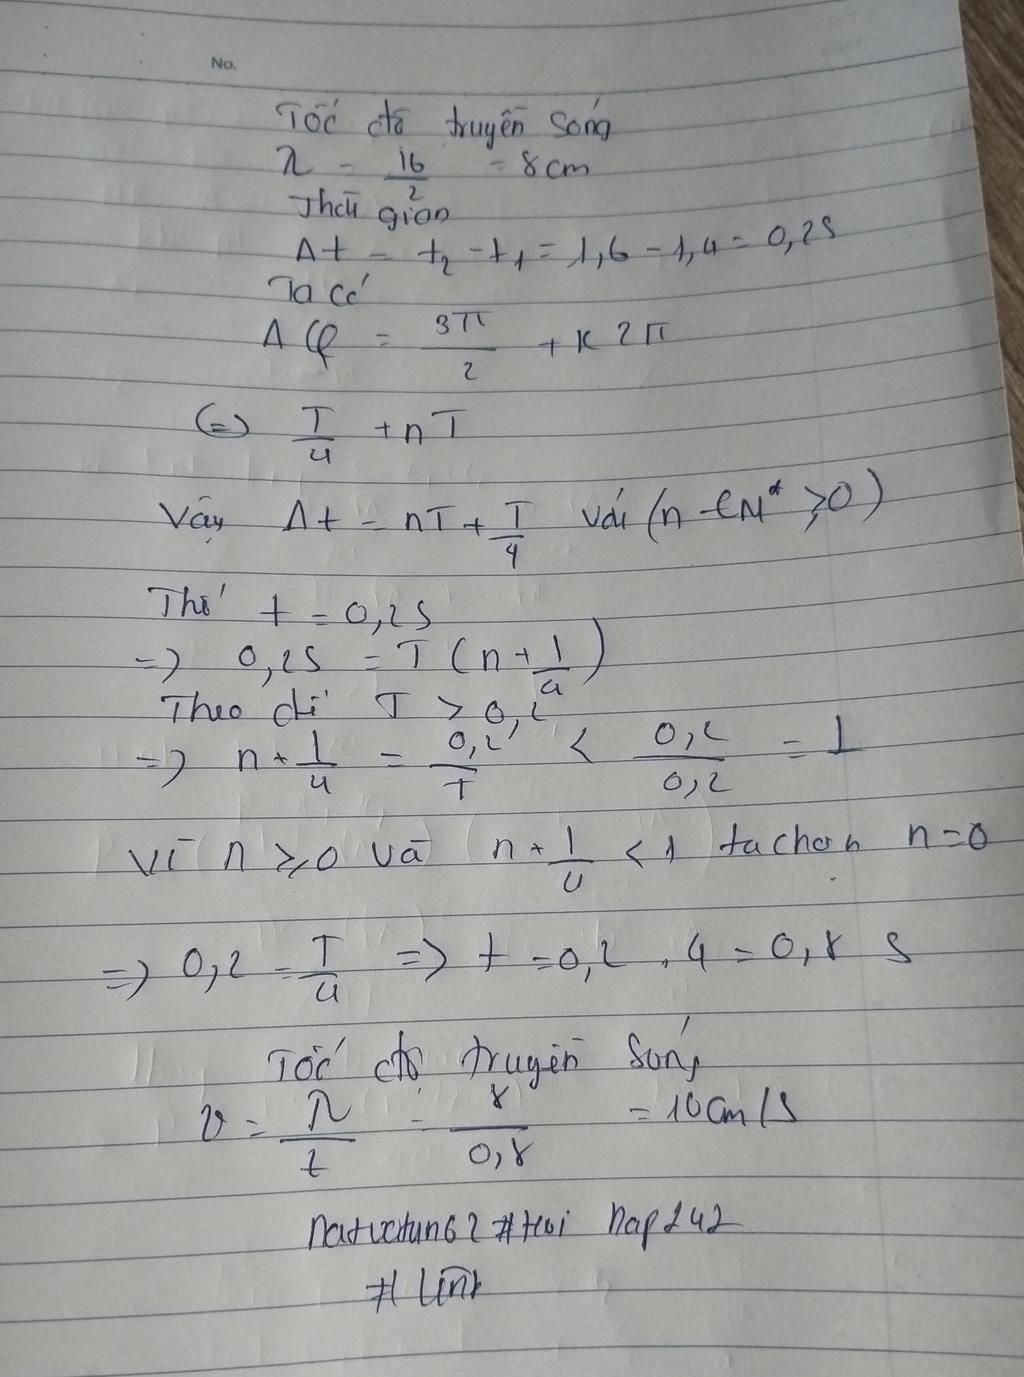 No.
Tốc độ truyền sóng
λ = 16/2 = 8cm
Thời gian
Δt = t₂ - t₁ = 1,6 - 1,4 = 0,2S
Ta có
Δφ = 3π/2 + K2π
(=) T/4 + nT
Vậy Δt = nT + T/4 với (n ∈ N* ≥ 0)
Thì t = 0,2S
=> 0,2S = T(n + 1/4)
Theo đề T > 0,2
=> n + 1/4 = 0,2/T < 0,2/0,2 = 1
Vì n ≥ 0 và n + 1/4 < 1 ta chọn n = 0
=> 0,2 = T/4 => t = 0,2 . 4 = 0,8 S
Tốc độ truyền sóng
v = λ/t = 8/0,8 = 10cm/S
#Hoi Dap247
#